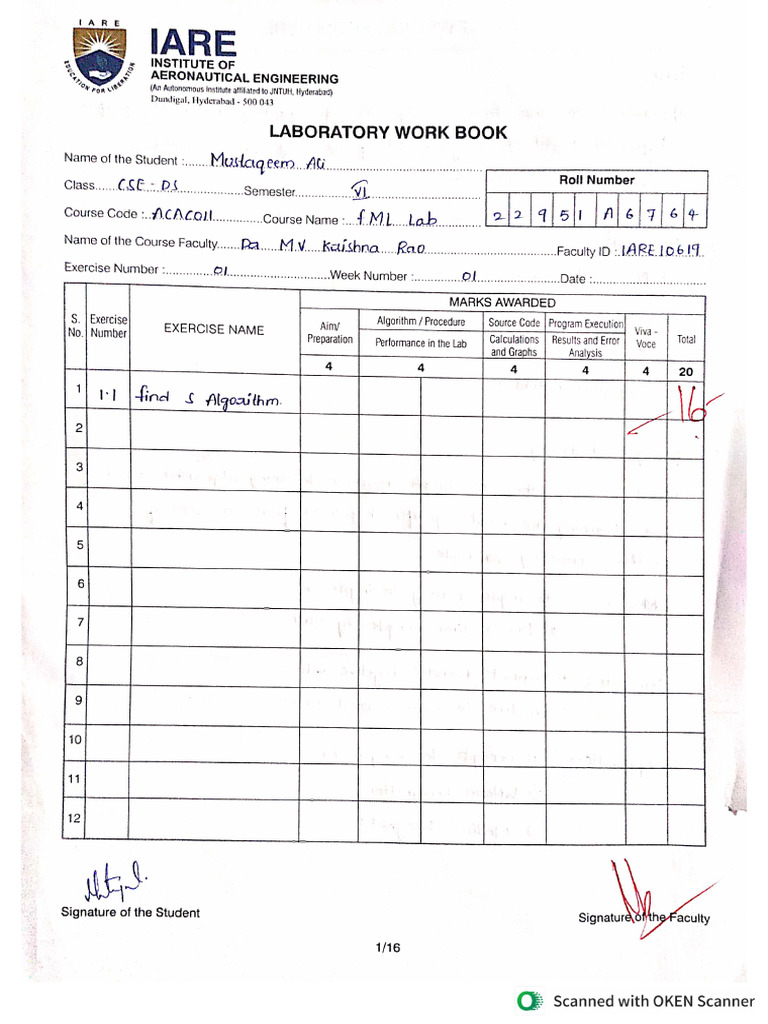 I A R E
EDUCATION FOR LIBERATION
IARE
INSTITUTE OF
AERONAUTICAL ENGINEERING
(An Autonomous Institute affiliated to JNTUH, Hyderabad)
Dundigal, Hyderabad - 500 043
LABORATORY WORK BOOK
Name of the Student :....... Mustaqeem Ali
Class...... CSE - DS ......Semester...... VI
Roll Number
Course Code : ..ACAC011......Course Name : .. fML Lab
2 2 9 5 1 A 6 7 6 4
Name of the Course Faculty...... Da M.V Kaishna Rao ......Faculty ID : IARE10619
Exercise Number :...... 01 ......Week Number :...... 01 ......Date :
S. No. Exercise Number EXERCISE NAME MARKS AWARDED
Aim/ Preparation Algorithm / Procedure Source Code Program Execution Viva - Voce Total
Performance in the Lab Calculations and Graphs Results and Error Analysis
4 4 4 4 4 20
1 1.1 find S Algoaithm. 16
2
3
4
5
6
7
8
9
10
11
12
Signature of the Student
Signature of the Faculty
1/16
Scanned with OKEN Scanner